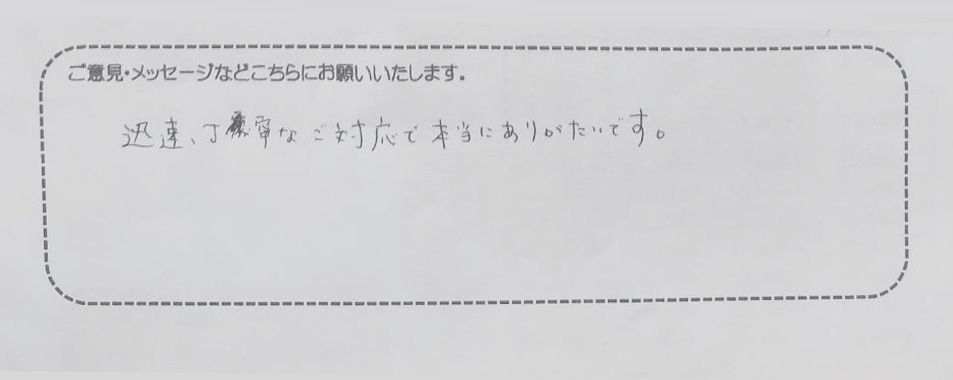 ご意見・メッセージなどこちらにお願いいたします。
迅速、丁寧なご対応で本当にありがたいです。